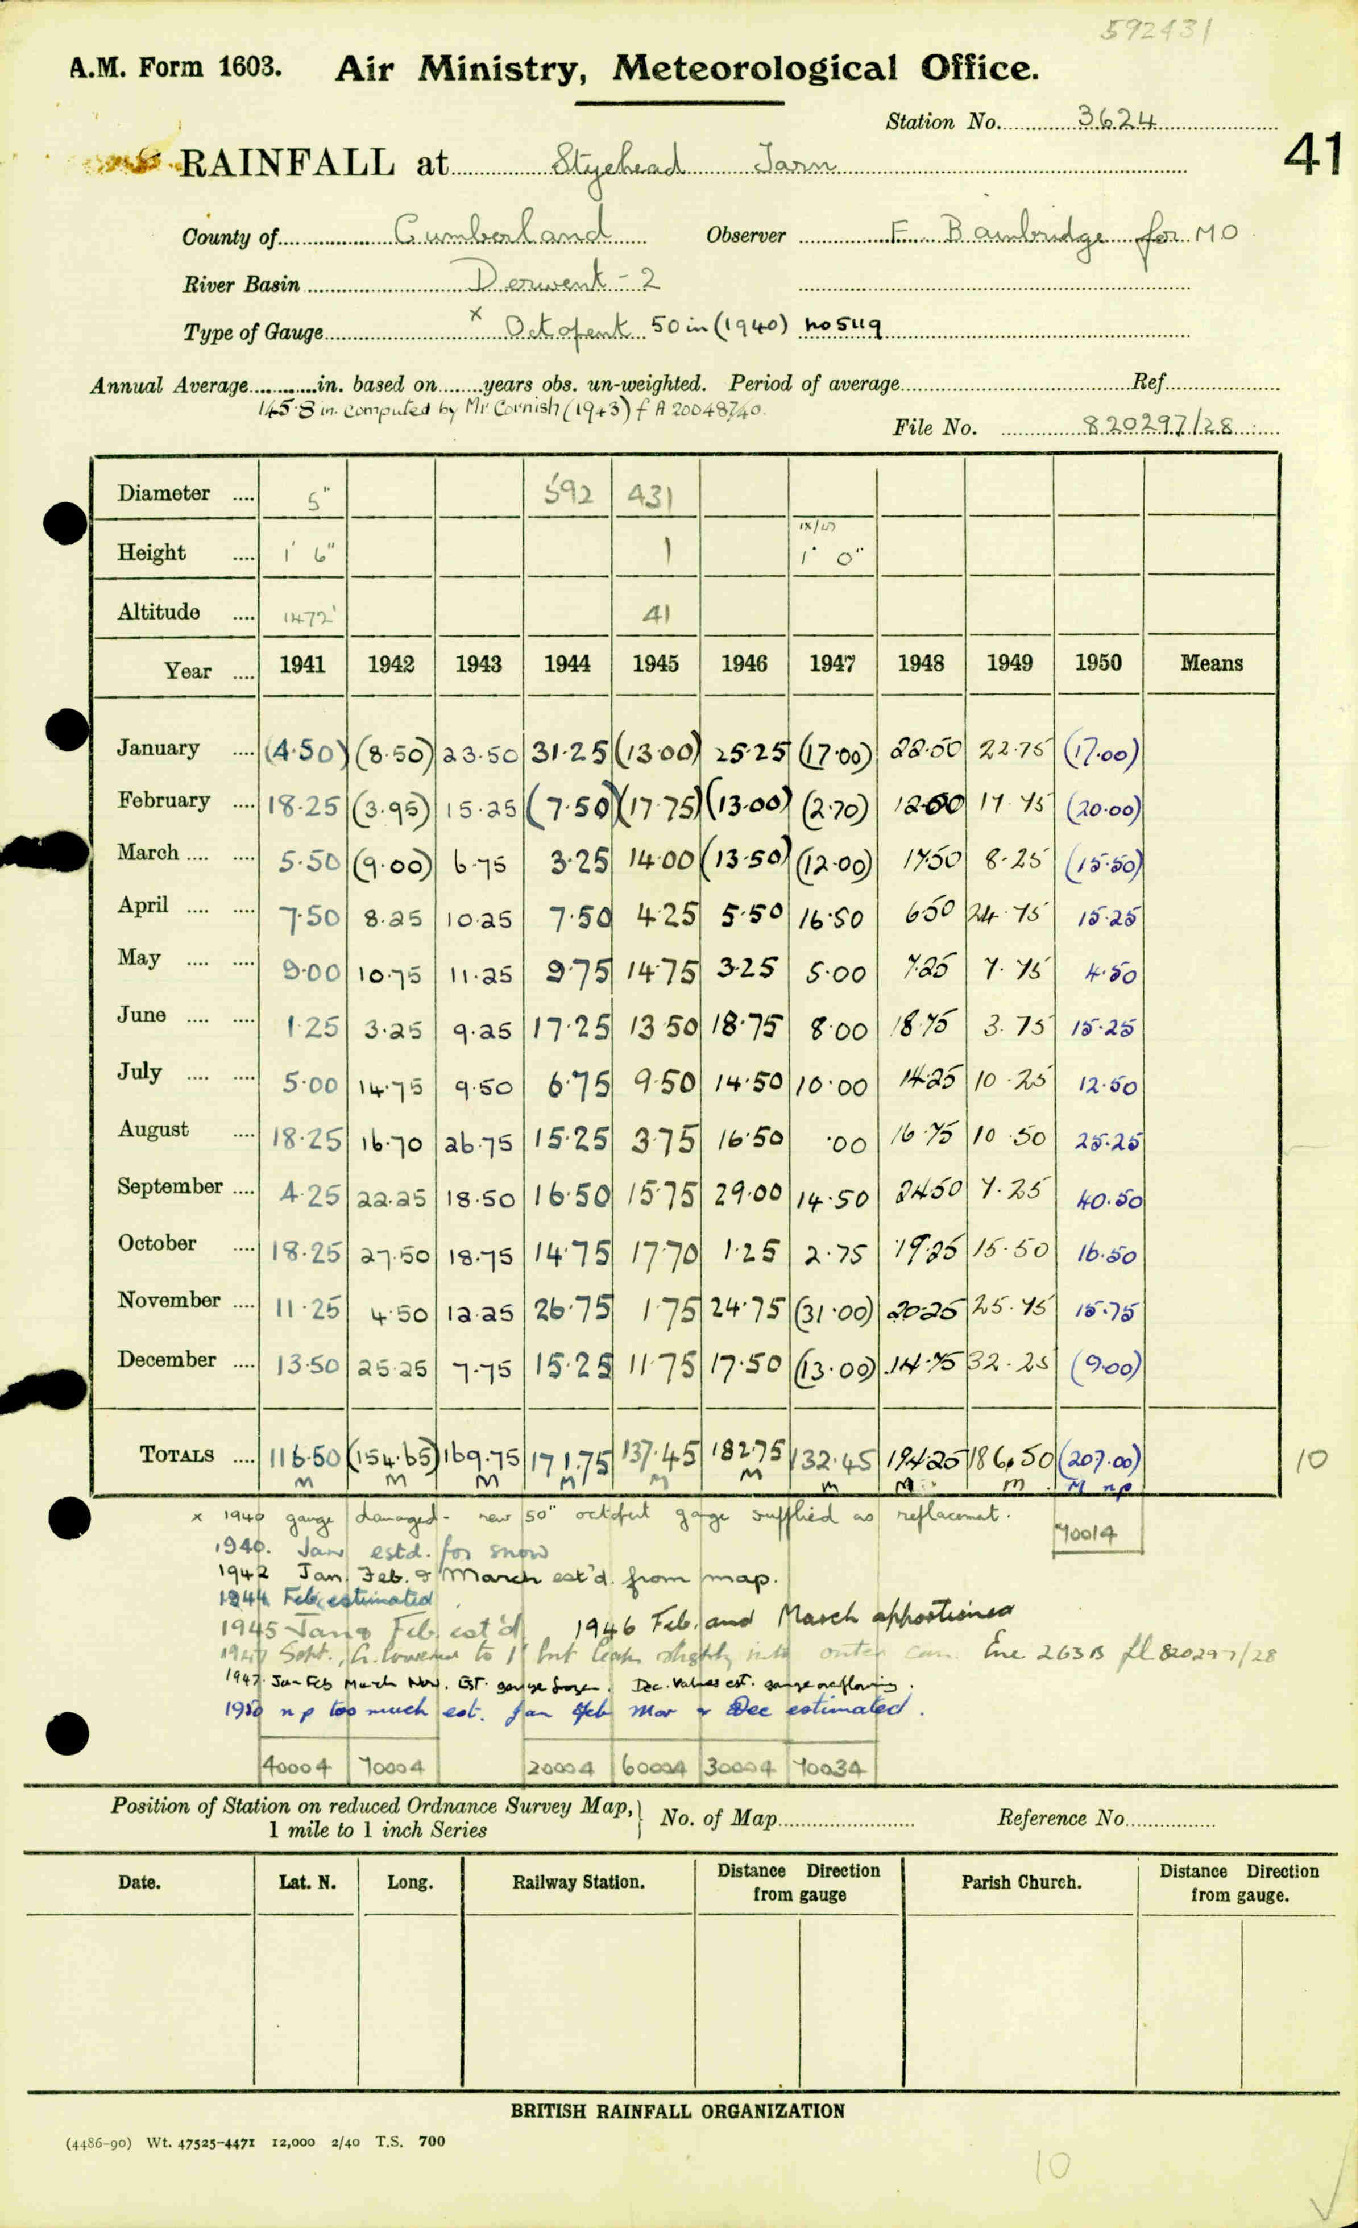 592431
A.M. Form 1603. Air Ministry, Meteorological Office.
Station No. 3624
41
RAINFALL at Styehead Tarn
County of Cumberland Observer F. Bainbridge for MO
River Basin Derwent - 2
Type of Gauge x Octapent 50 in (1940) no 5119
Annual Average in. based on years obs. un-weighted. Period of average Ref
145.8 in. computed by Mr Cornish (1943) f A 20048/40.
File No. 820297/28
Diameter 5" 592 431
IX/47
Height 1' 6" 1 1' 0"
Altitude 1472' 41
Year 1941 1942 1943 1944 1945 1946 1947 1948 1949 1950 Means
January (4.50) (8.50) 23.50 31.25 (13.00) 25.25 (17.00) 22.50 22.75 (17.00)
February 18.25 (3.95) 15.25 (7.50) (17.75) (13.00) (2.70) 12.00 17.75 (20.00)
March 5.50 (9.00) 6.75 3.25 14.00 (13.50) (12.00) 17.50 8.25 (15.50)
April 7.50 8.25 10.25 7.50 4.25 5.50 16.50 6.50 24.75 15.25
May 9.00 10.75 11.25 9.75 14.75 3.25 5.00 7.25 7.75 4.50
June 1.25 3.25 9.25 17.25 13.50 18.75 8.00 18.75 3.75 15.25
July 5.00 14.75 9.50 6.75 9.50 14.50 10.00 14.25 10.25 12.50
August 18.25 16.70 26.75 15.25 3.75 16.50 .00 16.75 10.50 25.25
September 4.25 22.25 18.50 16.50 15.75 29.00 14.50 24.50 7.25 40.50
October 18.25 27.50 18.75 14.75 17.70 1.25 2.75 19.25 15.50 16.50
November 11.25 4.50 12.25 26.75 1.75 24.75 (31.00) 20.25 25.75 15.75
December 13.50 25.25 7.75 15.25 11.75 17.50 (13.00) 14.75 32.25 (9.00)
TOTALS 116.50 (154.65) 169.75 171.75 137.45 182.75 132.45 194.25 186.50 (207.00) 10
M M M M M M M M M M np
x 1940 gauge damaged - new 50" octapent gauge supplied as replacement.
70014
1940. Jan estd. for snow
1942 Jan. Feb. & March est'd. from map.
1944 Feb. estimated
1945 Jan & Feb. est'd 1946 Feb. and March apportioned
1947 Sept. G. lowered to 1' but leaks slightly into outer can. Enc 263B fl 820297/28
1947. Jan Feb March Nov. Est. gauge frozen. Dec. Values est. gauge overflowing.
1950 n p too much est. Jan Feb Mar & Dec estimated.
40004 70004 20004 60004 30004 70034
Position of Station on reduced Ordnance Survey Map, 1 mile to 1 inch Series } No. of Map Reference No.
Date. Lat. N. Long. Railway Station. Distance Direction from gauge Parish Church. Distance Direction from gauge.
BRITISH RAINFALL ORGANIZATION
(4486-90) Wt. 47525-4471 12,000 2/40 T.S. 700
10